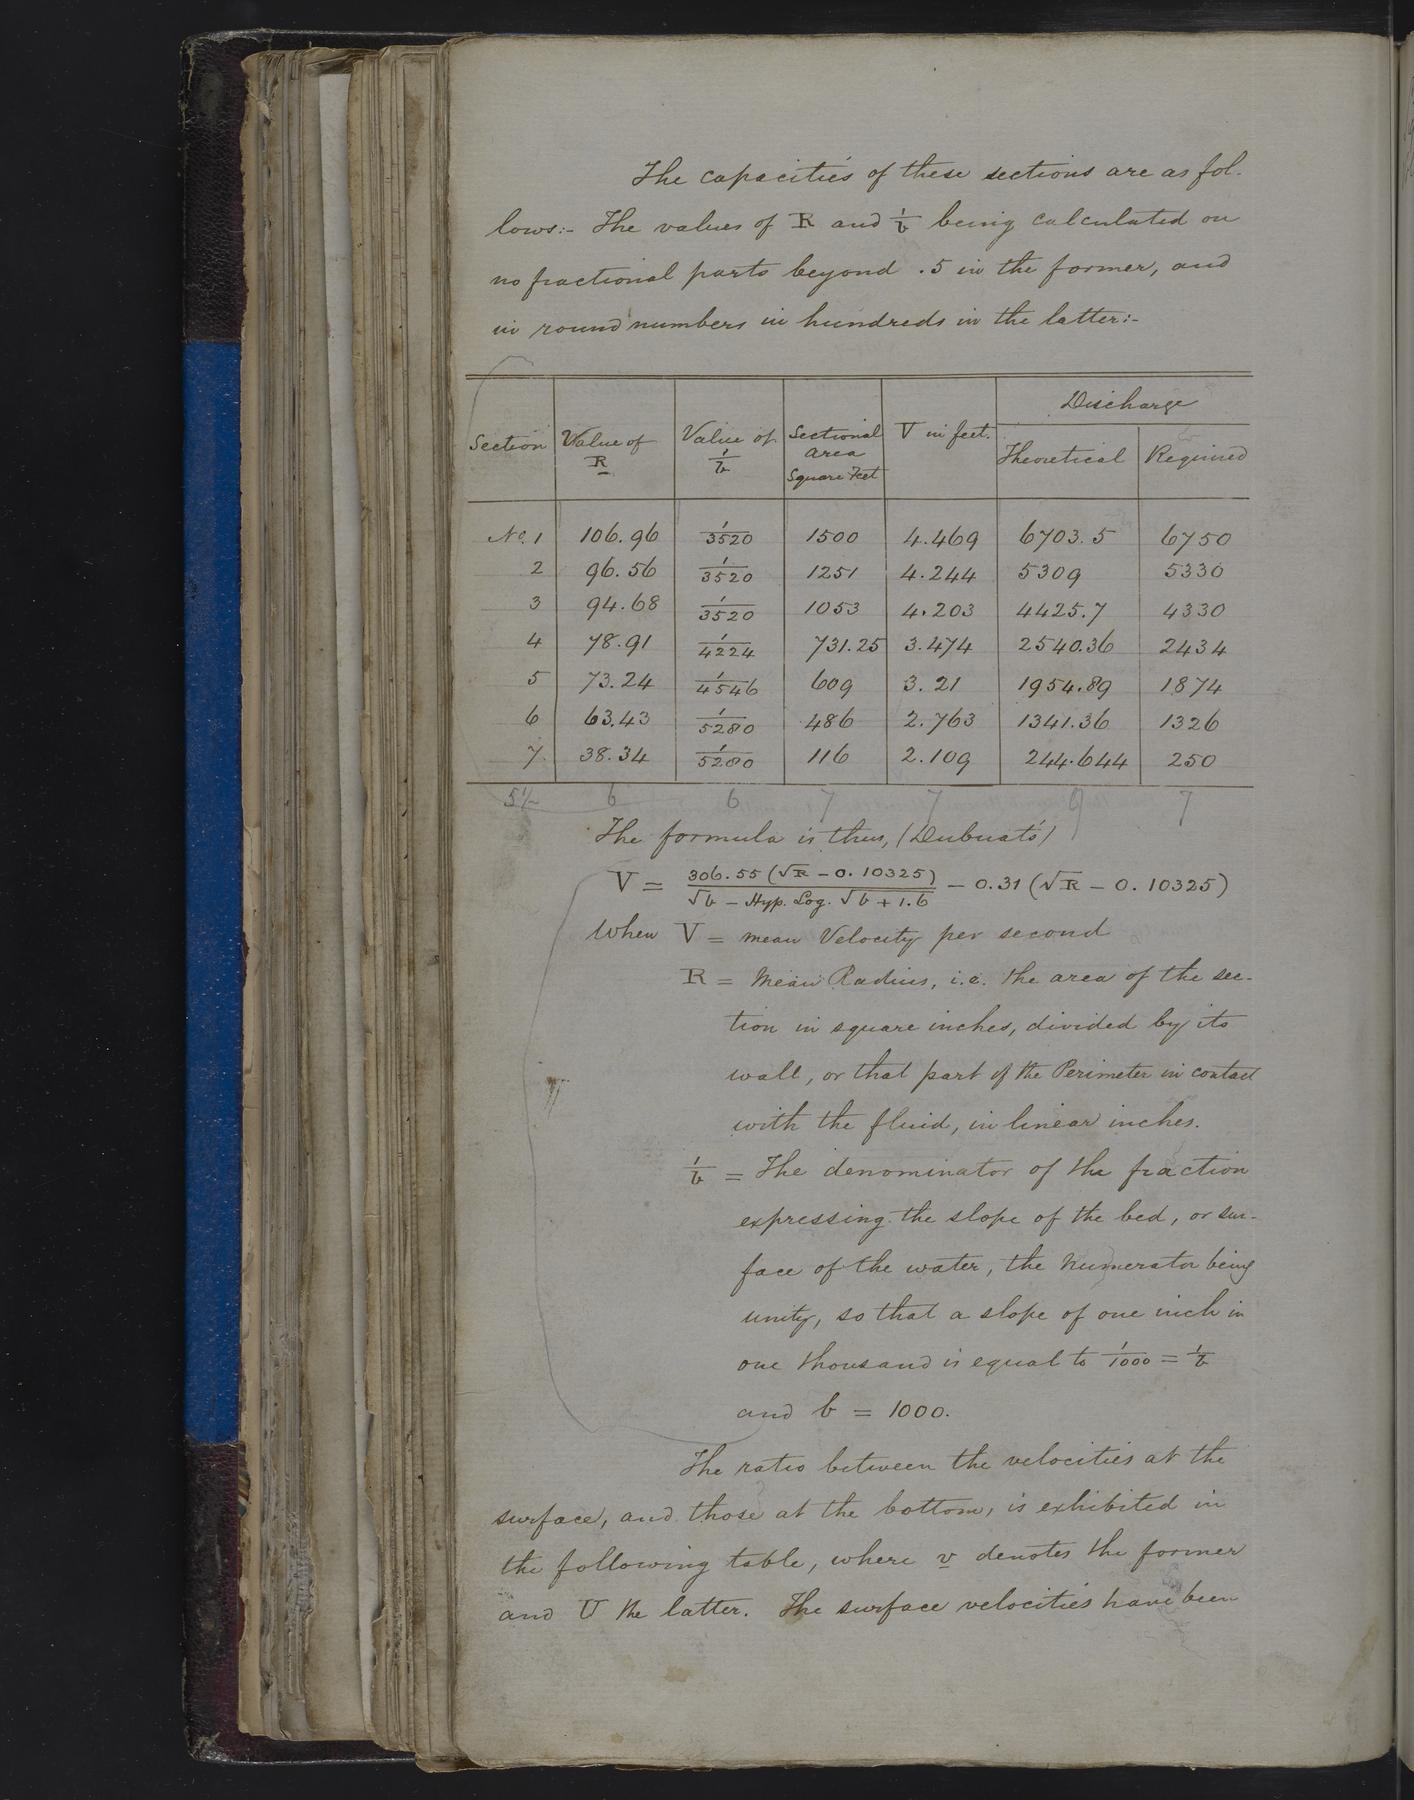 The capacities of these sections are as fol-
lows:- The values of R and 1/b being calculated on
no fractional parts beyond .5 in the former, and
in round numbers in hundreds in the latter:-
Discharge
Section Value of R Value of 1/b Sectional area Square Feet V in feet. Theoretical Required
No. 1 106.96 1/3520 1500 4.469 6703.5 6750
2 96.56 1/3520 1251 4.244 5309 5330
3 94.68 1/3520 1053 4.203 4425.7 4330
4 78.91 1/4224 731.25 3.474 2540.36 2434
5 73.24 1/4546 609 3.21 1954.89 1874
6 63.43 1/5280 486 2.763 1341.36 1326
7. 38.34 1/5280 116 2.109 244.644 250
6 6 7 7 9 7
The formula is thus, (Dubuat's)
V = 306.55 (√R - 0.10325) / √b - Hyp. Log. √b + 1.6 - 0.31 (√R - 0.10325)
When V = mean Velocity per second
R = Mean Radius, i.e. the area of the sec-
tion in square inches, divided by its
wall, or that part of the Perimeter in contact
with the fluid, in linear inches.
1/b = The denominator of the fraction
expressing the slope of the bed, or sur-
face of the water, the numerator being
unity, so that a slope of one inch in
one thousand is equal to 1/1000 = 1/b
and b = 1000.
The ratio between the velocities at the
surface, and those at the bottom, is exhibited in
the following table, where v denotes the former
and U the latter. The surface velocities have been